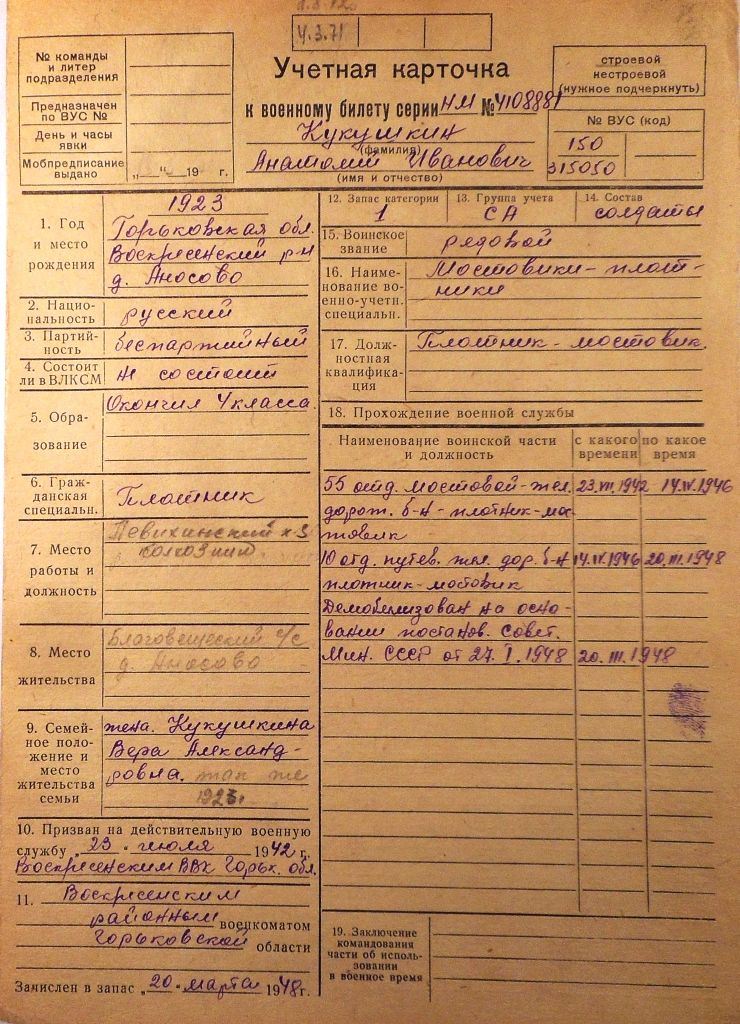 4.3.71
№ команды
и литер
подразделения
Предназначен
по ВУС №
День и часы
явки
Мобпредписание
выдано
„ “ 19 г.
Учетная карточка
к военному билету серии НМ № 4108881
Кукушкин
(фамилия)
Анатолий Иванович
(имя и отчество)
строевой
нестроевой
(нужное подчеркнуть)
№ ВУС (код)
150
315050
1. Год
и место
рождения
1923
Горьковская обл.
Воскресенский р-н
д. Аносово
2. Нацио-
нальность
русский
3. Партий-
ность
беспартийный
4. Состоит
ли в ВЛКСМ
не состоит
5. Обра-
зование
Окончил 4 класса.
6. Граж-
данская
специальн.
Плотник
7. Место
работы и
должность
колхозник
8. Место
жительства
Благовещеский с/с
д. Аносово
9. Семей-
ное поло-
жение и
место
жительства
семьи
жена. Кукушкина
Вера Александ-
ровна. там же
1923г.
10. Призван на действительную военную
службу „23“ июля 1942 г.
Воскресенским ВВК Горьк. обл.
11. Воскресенским
районным военкоматом
Горьковской области
Зачислен в запас „20“ марта 1948г.
12. Запас категории
1
13. Группа учета
СА
14. Состав
солдаты
15. Воинское
звание
рядовой
16. Наиме-
нование во-
енно-учетн.
специальн.
Мостовики-плот-
ники
17. Долж-
ностная
квалифика-
ция
Плотник-мостовик.
18. Прохождение военной службы
Наименование воинской части
и должность
с какого
времени
по какое
время
55 отд. мостовой-жел. 23.VII.1942 14.IV.1946
дорож. б-н-плотник-мо-
товик
10 отд. путев. жел. дор. б-н 14.IV.1946 20.III.1948
плотник-мостовик
Демобилизован на осно-
вании постанов. Совет.
Мин. СССР от 27.I.1948 20.III.1948
19. Заключение
командования
части об исполь-
зовании
в военное время